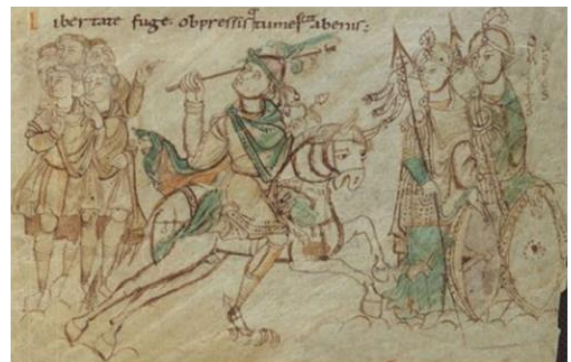 Libertate fuge. obpressisq tumescit abenis: